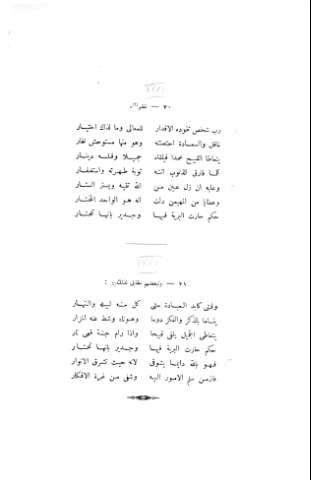 ٢٠ — تخفيراً
رب شخص تقوده الاقدار للمعالي وما لذاك اختيار
غافل والسعادة احتضنته وهو منها مستوحش نفار
يتعاطى القبيح عمدا فيلقاه جميلا وقلبه
كلما قارف الذنوب اتته توبة طهرته واستغفار
وعليه ان زل عين من الله تقيه ويستر الستار
وعطايا من المهيمن دلت انه الواحد المختار
حكم حارت البرية فيها وجدير بانها تحتار
٢١ — ولبعضهم مقابل
وفتى كابد العبادة حتى كل منه ليله والنهار
يتسامى بالذكر والفكر دوما وهو ناء وشط عنه المزار
يتعاطى الجميل يلقى قبيحا واذا رام جنة فهي نار
حكم حارت البرية فيها وجدير بانها تحتار
فهو بالله دايما يتشوق لانه حيث تشرق الانوار
فازمن سلم الامور اليه وشفى من غمرة الافكار